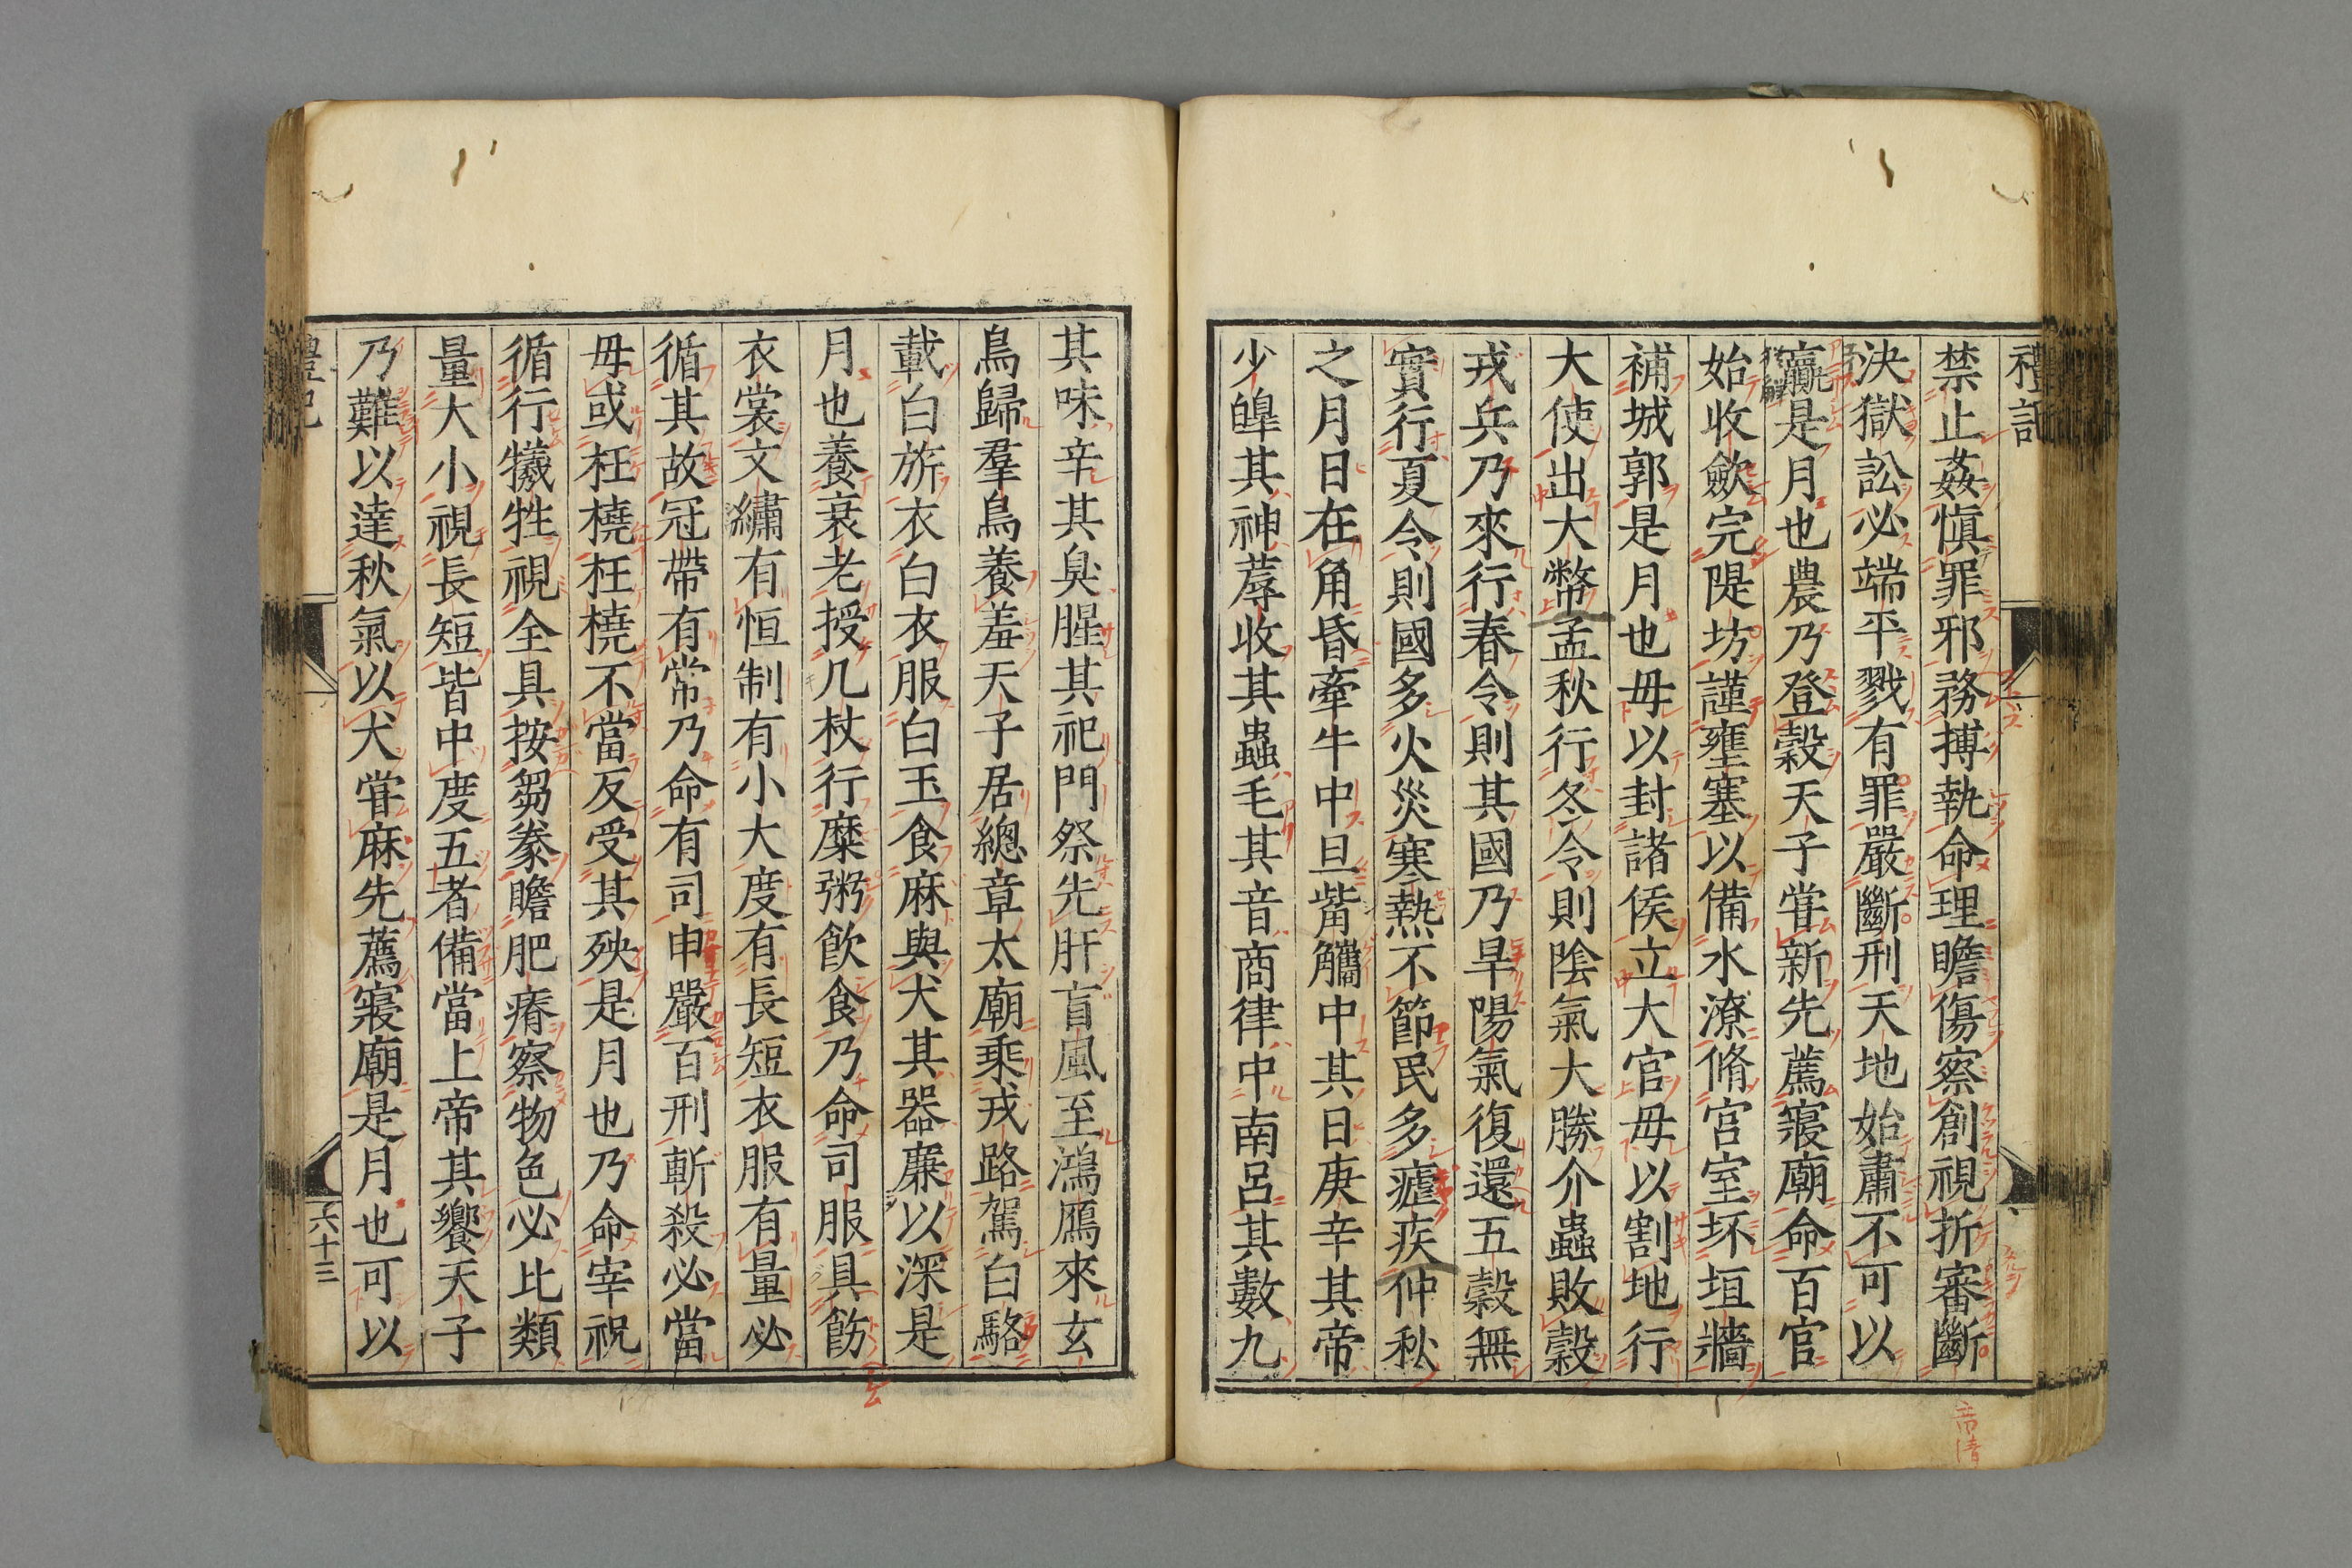 禮記
禁止姦愼罪邪務搏執命理瞻傷察創視折審斷
決獄訟必端平戮有罪嚴斷刑天地始肅不可以
贏是月也農乃登穀天子嘗新先薦寢廟命百官
始收斂完隄坊謹壅塞以備水潦脩宮室坏垣牆
補城郭是月也毋以封諸侯立大官毋以割地行
大使出大幣孟秋行冬令則陰氣大勝介蟲敗穀
戎兵乃來行春令則其國乃旱陽氣復還五穀無
實行夏令則國多火災寒熱不節民多瘧疾仲秋
之月日在角昏牽牛中旦觜觿中其日庚辛其帝
少皥其神蓐收其蟲毛其音商律中南呂其數九
其味辛其臭腥其祀門祭先肝盲風至鴻鴈來玄
鳥歸羣鳥養羞天子居總章太廟乘戎路駕白駱
載白旂衣白衣服白玉食麻與犬其器廉以深是
月也養衰老授几杖行糜粥飲食乃命司服具飭
衣裳文繡有恒制有小大度有長短衣服有量必
循其故冠帶有常乃命有司申嚴百刑斬殺必當
毋或枉橈枉橈不當反受其殃是月也乃命宰祝
循行犧牲視全具按芻豢瞻肥瘠察物色必比類
量大小視長短皆中度五者備當上帝其饗天子
乃難以達秋氣以犬嘗麻先薦寢廟是月也可以
禮記
六十三